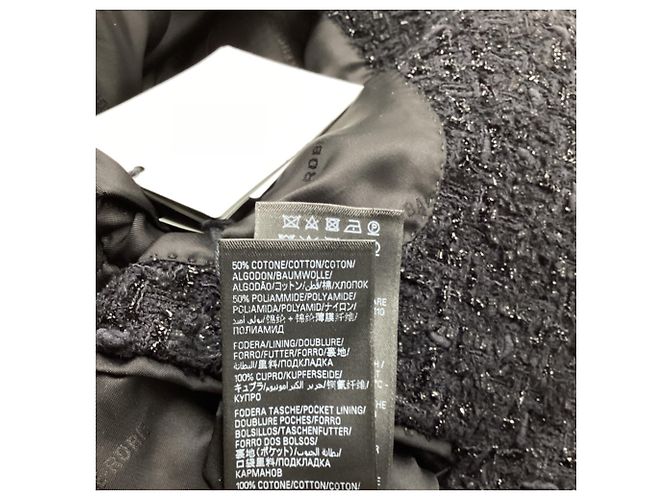 50% COTONE/COTTON/COTON/
ALGODON/BAUMWOLLE/
ALGODÃO/コットン/قطن/棉/ХЛОПОК
50% POLIAMMIDE/POLYAMIDE/
POLIAMIDA/POLYAMID/ナイロン/
锦纶 + 锦纶薄膜纤维/
ПОЛИАМИД
FODERA/LINING/DOUBLURE/
FORRO/FUTTER/FORRO/裏地/
بطانة/里料/ПОДКЛАДКА
100% CUPRO/KUPFERSEIDE/
キュプラ/حرير الكبرامونيوم/铜氨纤维/
КУПРО
FODERA TASCHE/POCKET LINING/
DOUBLURE POCHES/FORRO
BOLSILLOS/TASCHENFUTTER/
FORRO DOS BOLSOS/
裏地(ポケット)/بطانة الجيوب/
口袋里料/ПОДКЛАДКА
КАРМАНОВ
100% COTONE/COTTON/COTON/